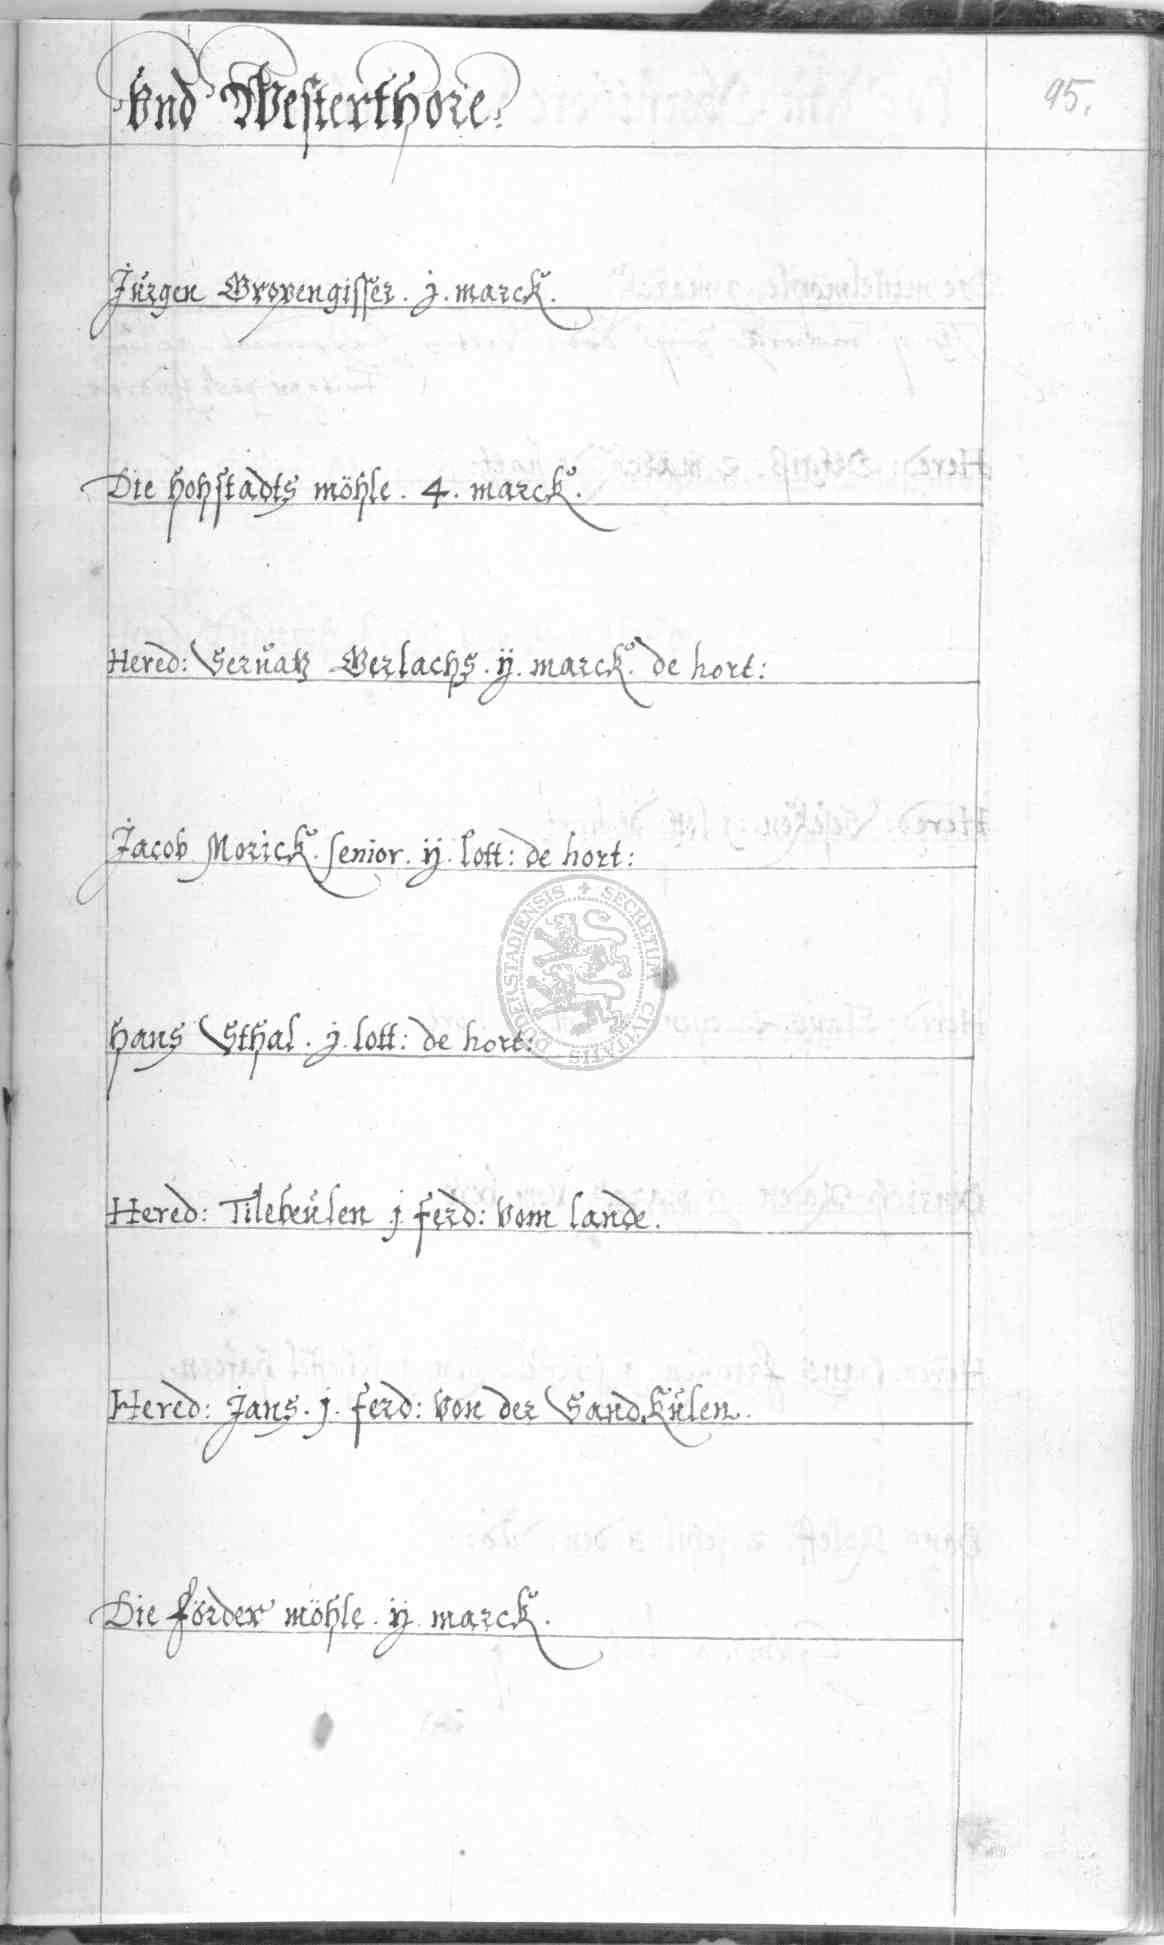 Vnd Westerthore.
95.
Jürgen Gropengisser. j. marck.
Die hohstadts möhle. 4. marck.
Hered: Servatz Gerlachs. ij. marck. de hort:
Jacob Morick senior. ij. lott: de hort:
Hans Sthal. j. lott: de hort:
Hered: Tilebeülen j ferd: vom lande.
Hered: Jans. j. ferd: von der Sandkülen.
Die förder möhle. ij. marck.
SECRETUM CIVITATIS DUDERSTADIENSIS